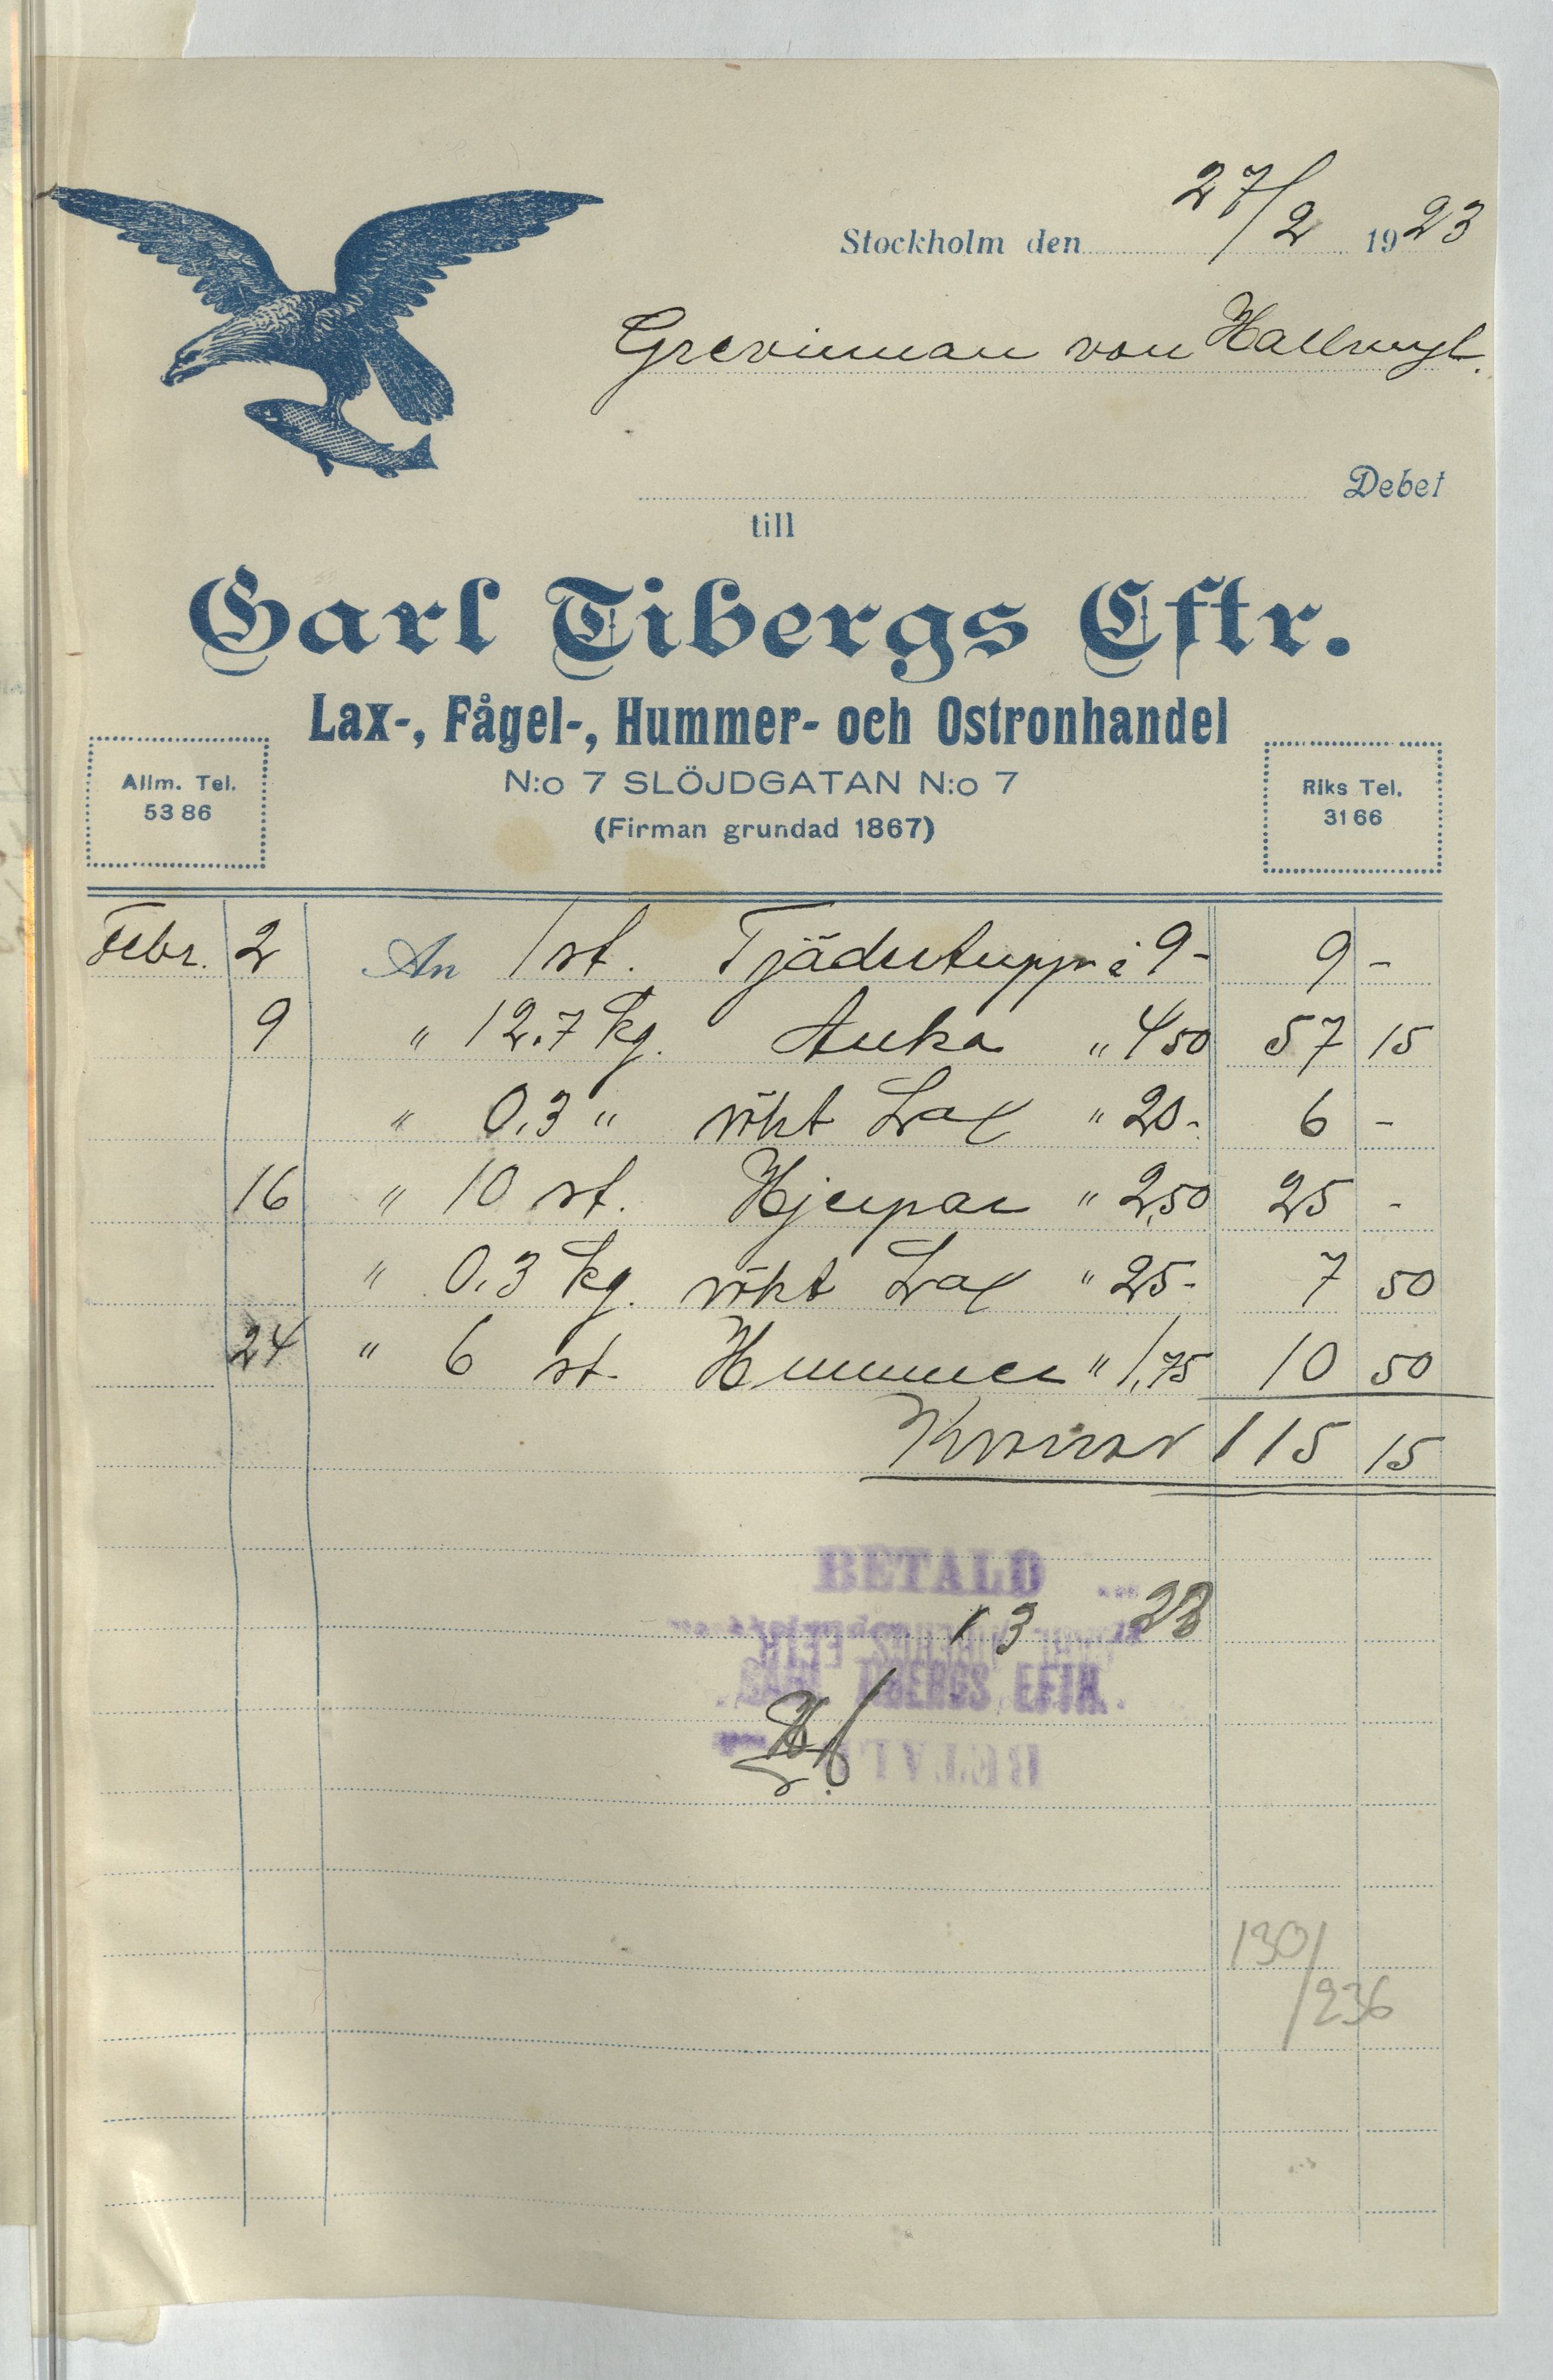 Stockholm den 27/2 1923
Grevinnan von Hallwyl.
Debet
till
Carl Tibergs Eftr.
Lax-, Fågel-, Hummer- och Ostronhandel
Allm. Tel. 53 86
N:o 7 SLÖJDGATAN N:o 7
Riks Tel. 31 66
(Firman grundad 1867)
Febr. 2 An 1 st. Tjädertupp à 9- 9 -
9 " 12.7 kg. Anka " 4 50 57 15
" 0.3 " rökt Lax " 20- 6 -
16 " 10 st. Hjerpar " 2,50 25 -
" 0.3 kg. rökt Lax " 25- 7 50
24 " 6 st. Hummer " 1,75 10 50
Kronor 115 15
BETALD
1 3 23
CARL TIBERGS EFTR.
130/236